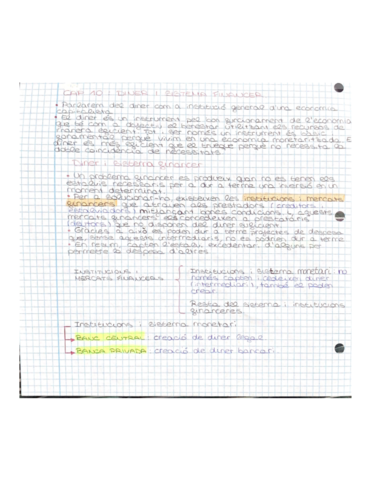 CAP 10: DINER I SISTEMA FINANCER
• Parlarem del diner com a institució general d'una economia
capitalista.
• El diner és un instrument pel bon funcionament de l'economia
que té com a objectiu el benestar utilitzant els recursos de
manera eficient. Tot i ser només un instrument és bàsic i
fonamental perquè vivim en una economia monetaritzada. El
diner és més eficient que el trueque perquè no necessita de
doble coincidència de necessitats.
Diner i Sistema financer
• Un problema financer es produeix quan no es tenen els
estalvis necessaris per a dur a terme una inversió en un
moment determinat.
• Per a solucionar-ho, existeixen les institucions i mercats
financers que atrauen als prestadors / creditors
(estalviadors) mitjançant bones condicions i, aquests
mercats financers, es concedeixen a prestataris
(deutors) que no disposen del diner suficient.
• Gràcies a això es poden dur a terme projectes de despesa
que, sense aquests intermediaris, no es podrien dur a terme.
• En resum, capten l'estalvi excedentari d'alguns per
permetre la despesa d'altres.
INSTITUCIONS I
MERCATS FINANCERS
Institucions i sistema monetari: no
només capten i cedeixen diner
(intermediari), també el poden
crear.
Resta del sistema i institucions
financeres.
Institucions i sistema monetari:
BANC CENTRAL: creació de diner legal.
BANCA PRIVADA: creació de diner bancari.